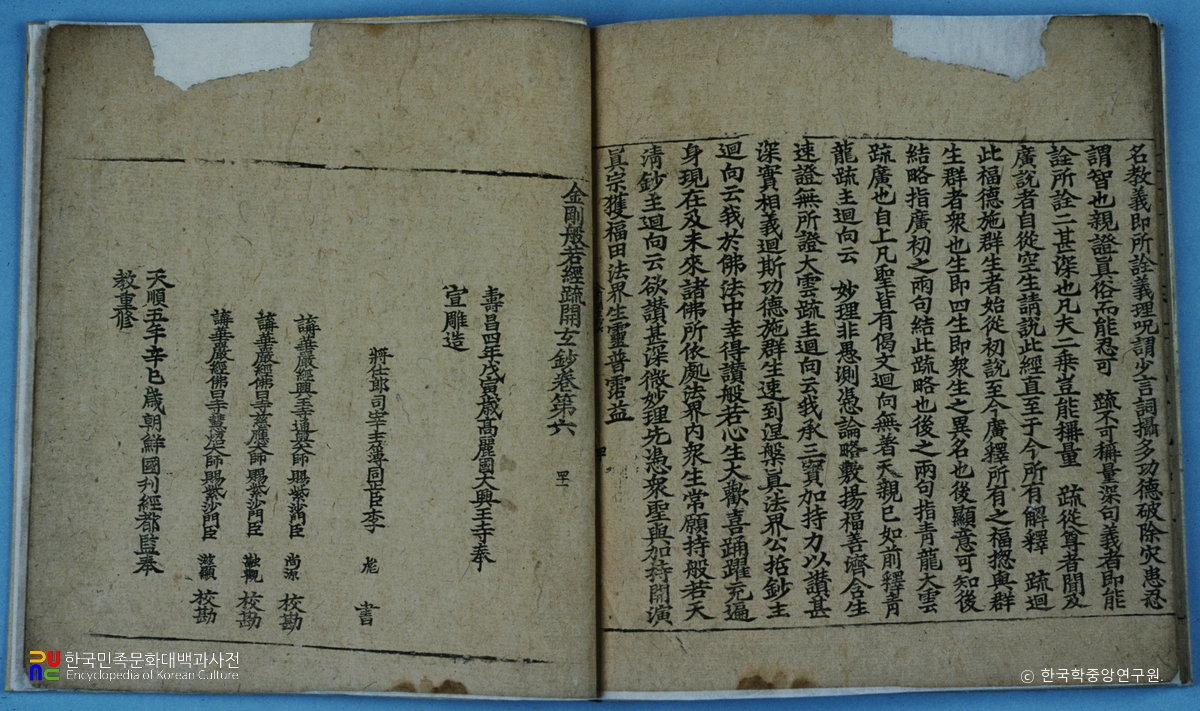 名教義即所詮義理呪謂少言詞攝多功德破除灾患忍
謂智也親證眞俗而能忍可 䟽不可稱量深句義者即能
詮所詮二甚深也凡夫二乘豈能稱量 䟽從尊者聞及
廣說者自從空生請說此經直至于今所有解釋 䟽迴
此福德施群生者始從初說至今廣釋所有之福揔與群
生群者衆也生即四生即衆生之異名也後顯意可知後
結略指廣初之兩句結此䟽略也後之兩句指青龍大雲
䟽廣也自上凡聖皆有偈文迴向無著天親已如前釋青
龍䟽主迴向云 妙理非愚測憑論略敷揚福善濟含生
速證無所證大雲䟽主迴向云我承三寶加持力以讚甚
深實相義迴斯功德施群生速到涅槃眞法界公哲鈔主
迴向云我於佛法中幸得讚般若心生大歡喜踊躍充遍
身現在及未來諸佛所依處法界内衆生常願持般若天
淸鈔主迴向云欲讚甚深微妙理先憑衆聖與加持開演
眞宗獲福田法界生靈普霑益
金剛般若經䟽開玄鈔卷第六
壽昌四年戊寅歲高麗國大興王寺奉
宣雕造
將仕郎司宰主簿同正臣李 彪 書
講華嚴經興王寺通奧大師賜紫沙門臣 尚源 校勘
講華嚴經佛日寺慈應大師賜紫沙門臣 融觀 校勘
講華嚴經佛日寺慧炤大師賜紫沙門臣 顯 校勘
天順五年辛巳歲朝鮮國刊經都監奉
教重修
한국민족문화대백과사전
Encyclopedia of Korean Culture
ⓒ 한국학중앙연구원.